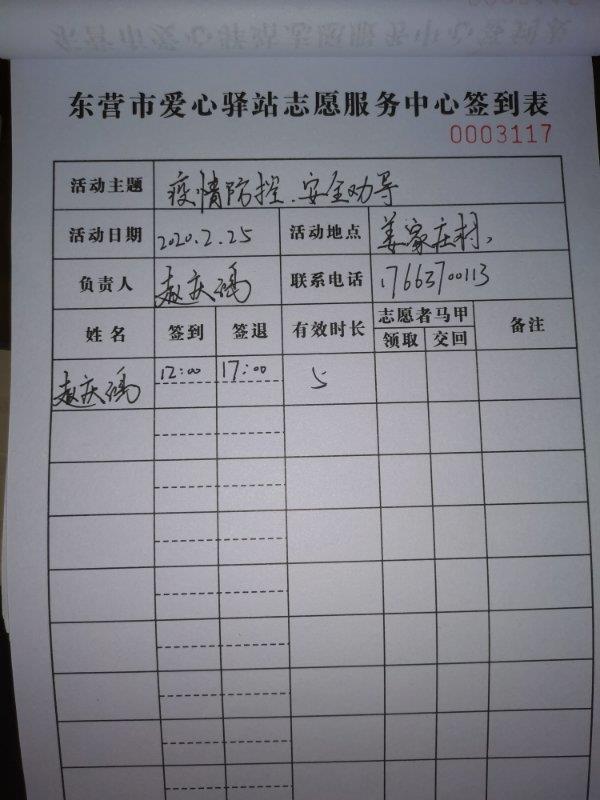 东营市爱心驿站志愿服务中心签到表
0003117
活动主题 疫情防控、安全劝导
活动日期 2020.2.25 活动地点 姜家庄村、
负责人 赵庆 联系电话 17663700113
姓名 签到 签退 有效时长 志愿者马甲 备注
领取 交回
赵庆 12:00 17:00 5